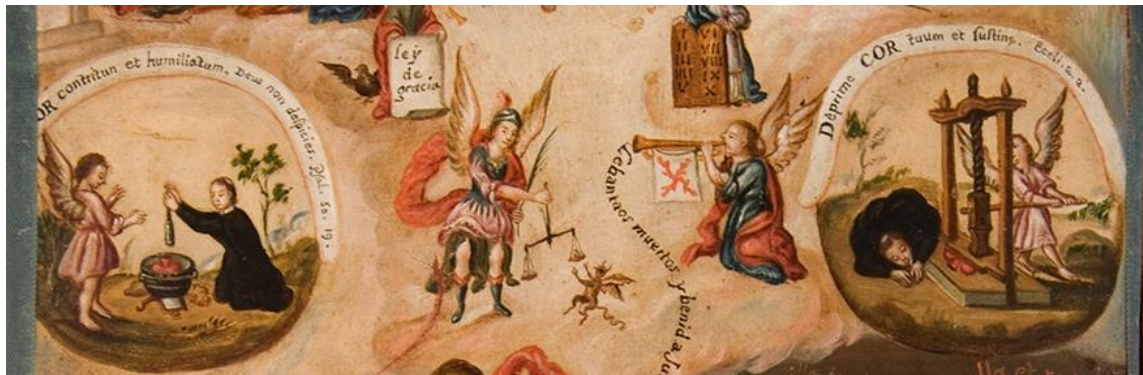 OR contritun et humiliatum, Deus non despicies, Psal. 50. 19.
ley
de
gracia
I VI
II VII
III VIII
IIII IX
V X
Lebantaos muertos y benid a Ju
Deprime COR tuum et sustine. Eccli. 2. 2.